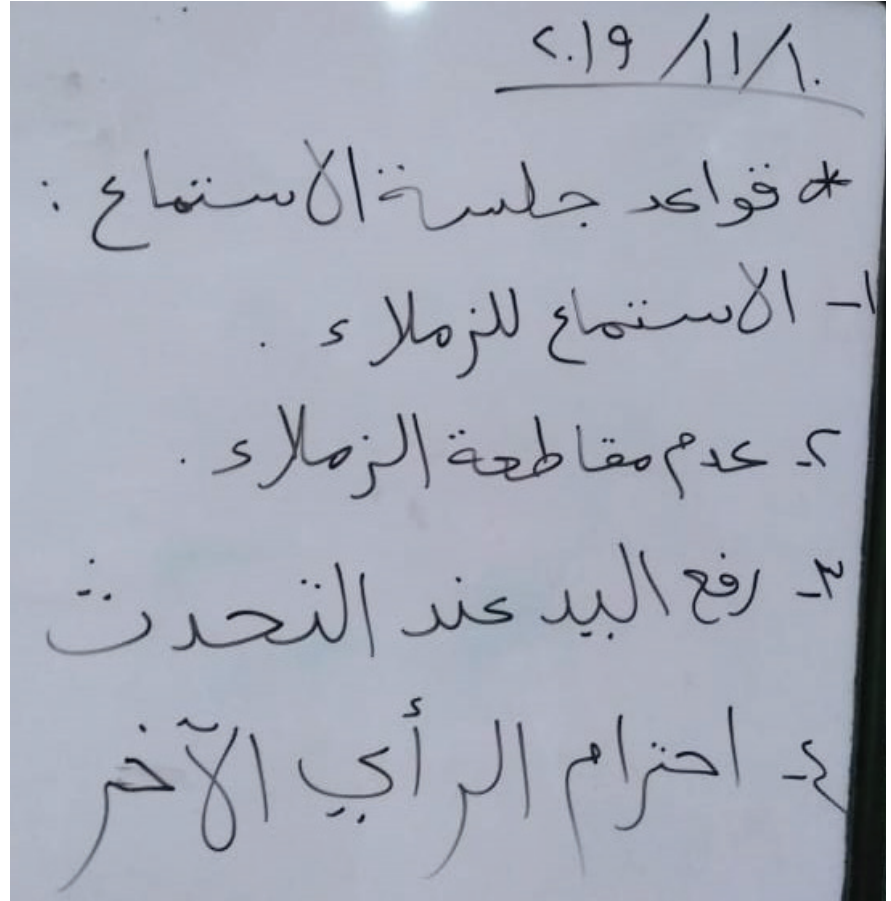 ٢٠١٩/١١/١٠
* قواعد جلسة الاستماع :
١- الاستماع للزملاء .
٢- عدم مقاطعة الزملاء .
٣- رفع اليد عند التحدث
٤- احترام الرأي الآخر